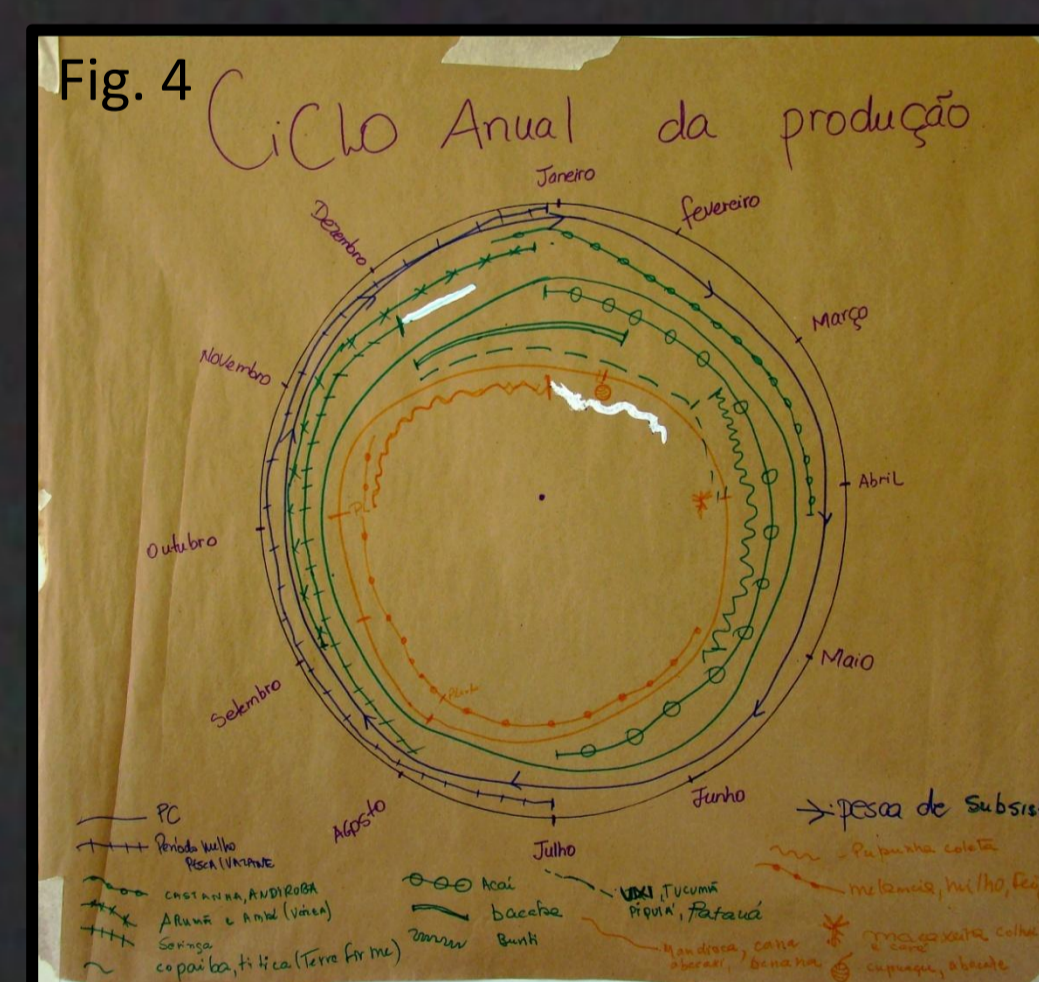 Fig. 4
CiClo Anual da produção
Janeiro
fevereiro
Março
Abril
Maio
Junho
Julho
Agosto
Setembro
Outubro
Novembro
Dezembro
PL
Planta
PC
Período
PESCA/VAZANTE
CASTANHA, ANDIROBA
ARUMÃ e Ambé (várzea)
Seringa
copaiba, titica (Terra firme)
Acaí
bacaba
Buriti
UXI, TUCUMÃ
PIQUIÁ, Patauá
Mandioca, cana
abacaxi, banana
pesca de Subsis
Pupunha coleta
melancia, milho, feij
macaxeira colhe
e cará
cupuaçu, abacate